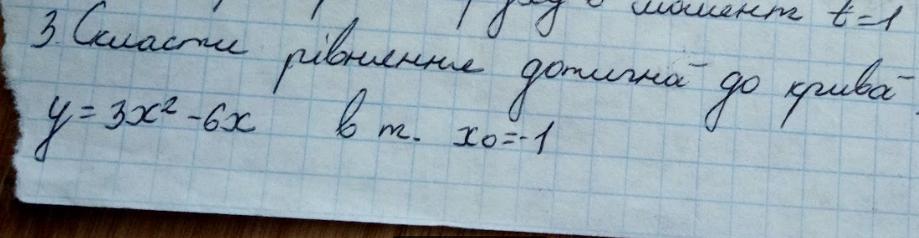 в момент t=1
3. Скласти рівняння дотична до крива
y=3x²-6x в т. x₀=-1